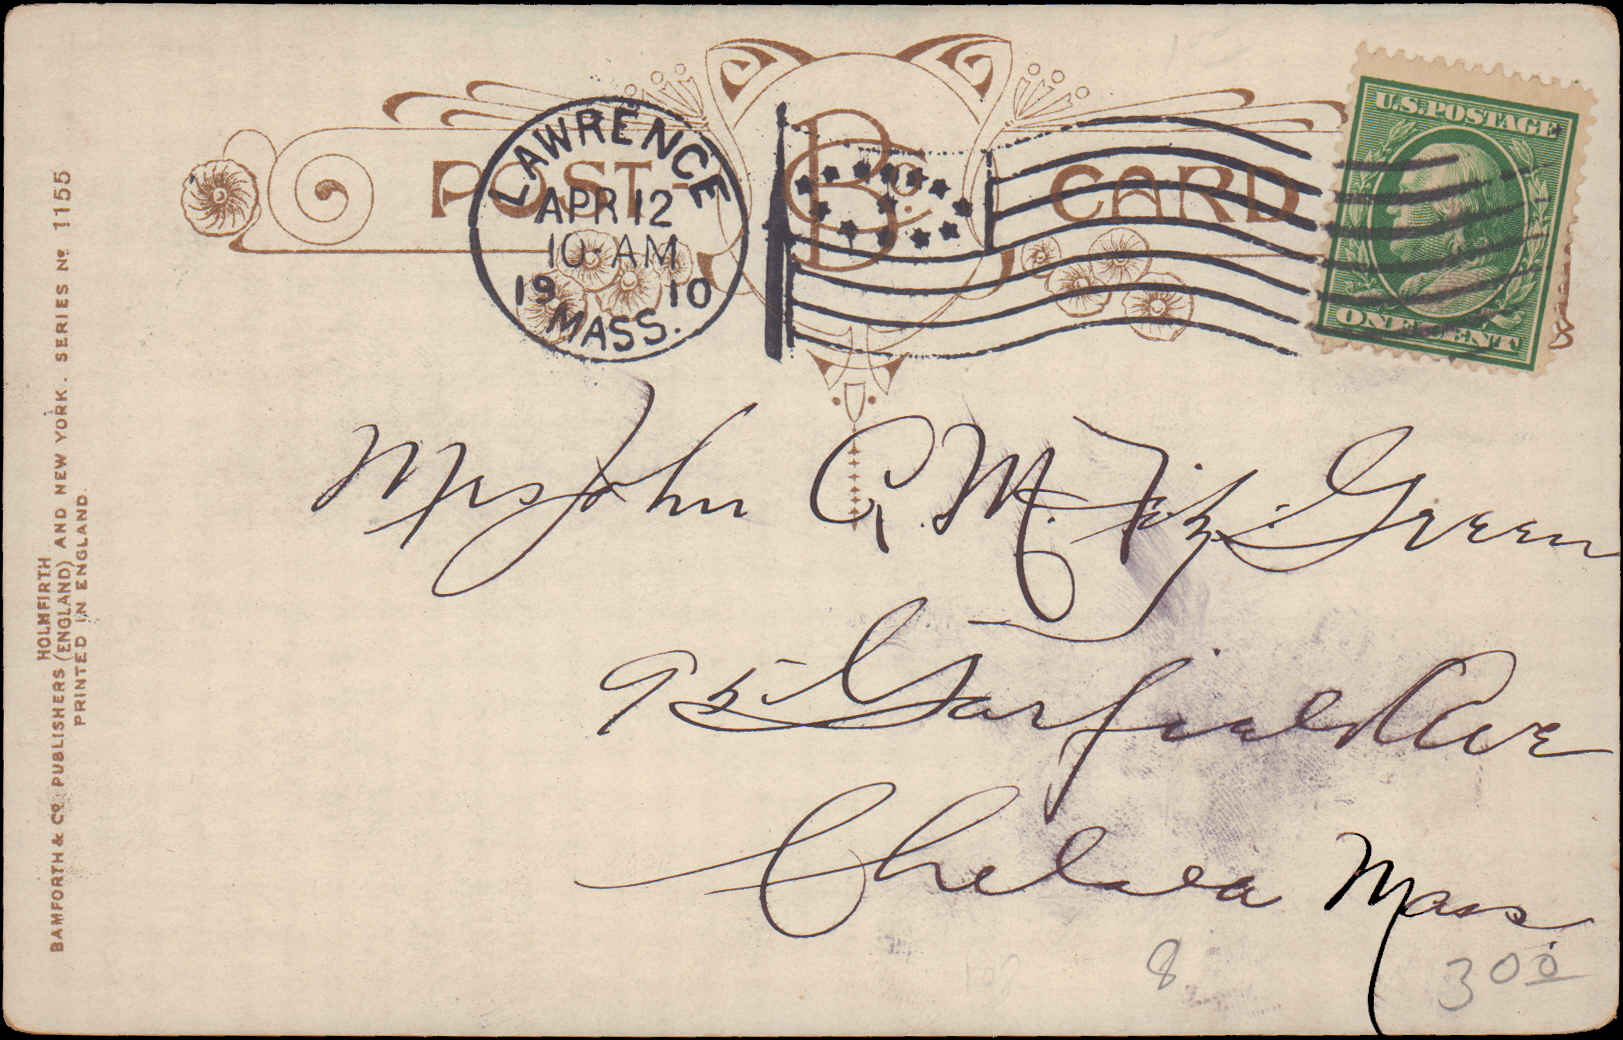 POST CARD
B & Co.
LAWRENCE
APR 12
10 AM
19 10
MASS.
U.S. POSTAGE
ONE CENT
Mrs John A. M. Fitz-Green
95 Garfield Ave
Chelsea Mass.
8
3 00
HOLMFIRTH
BAMFORTH & Co. PUBLISHERS (ENGLAND) AND NEW YORK. SERIES No 1155
PRINTED IN ENGLAND.